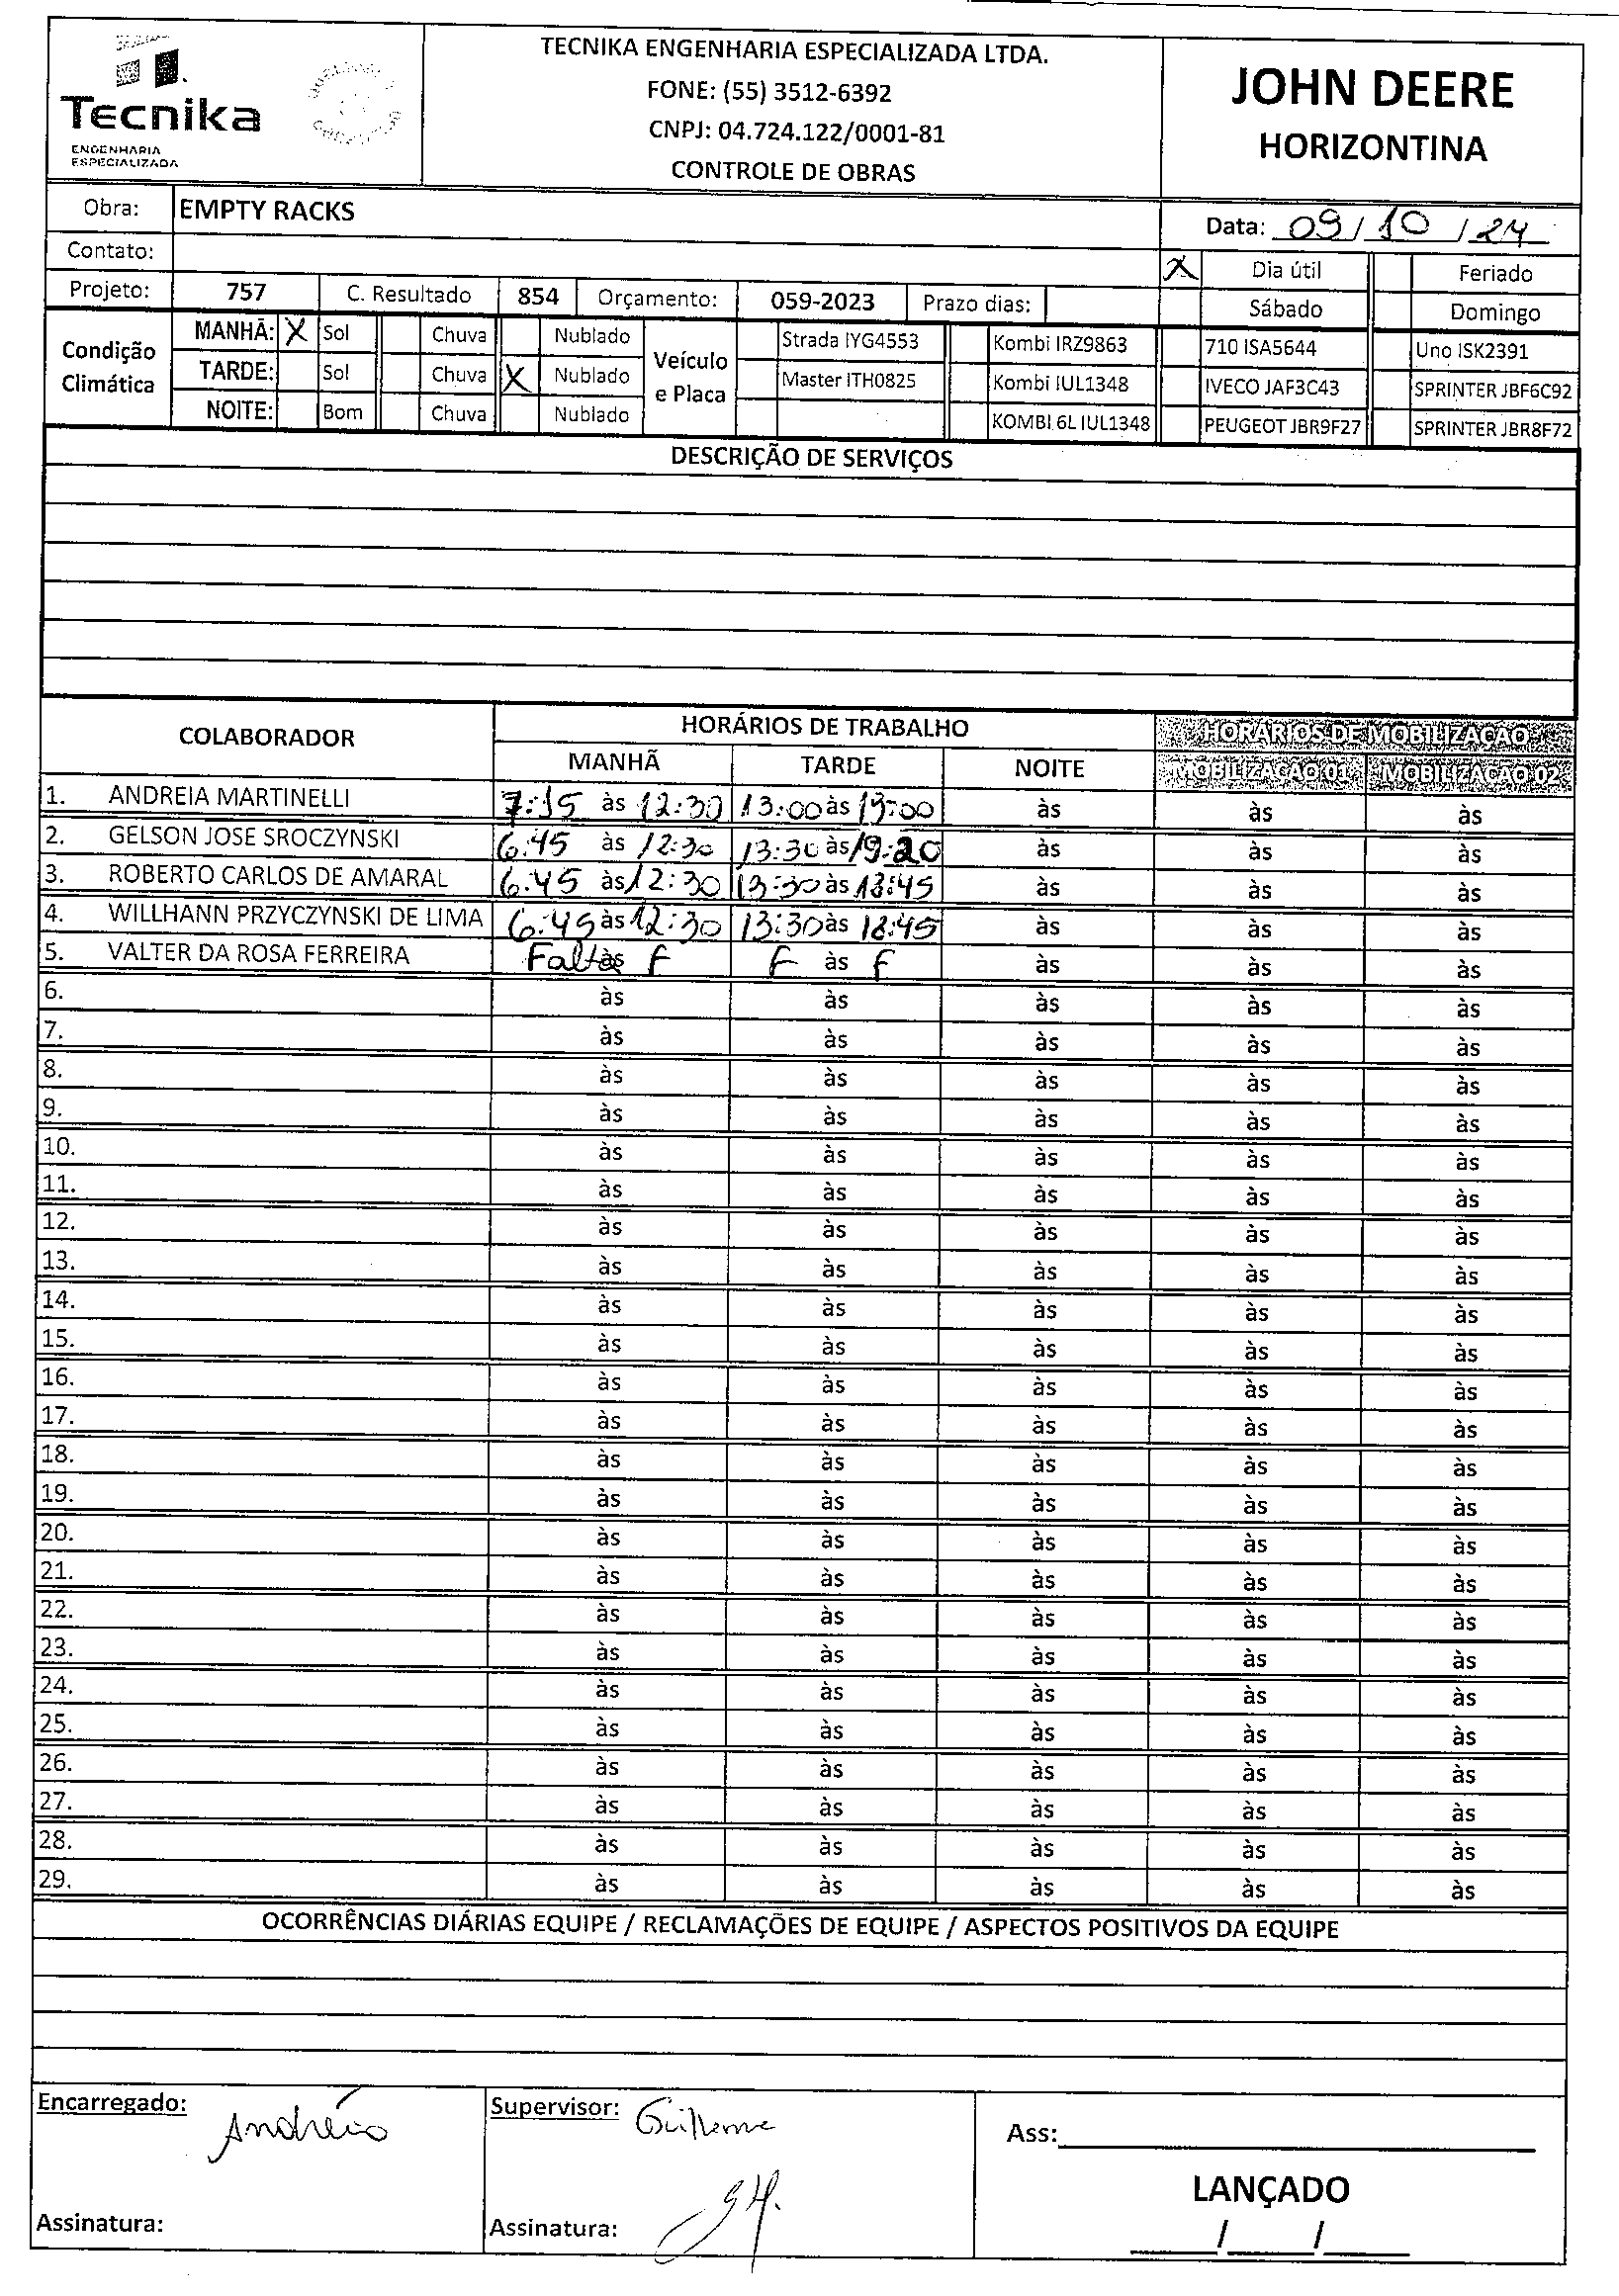 Tecnika
ENGENHARIA
ESPECIALIZADA
TECNIKA ENGENHARIA ESPECIALIZADA LTDA.
FONE: (55) 3512-6392
CNPJ: 04.724.122/0001-81
CONTROLE DE OBRAS
JOHN DEERE
HORIZONTINA
Obra: EMPTY RACKS
Data: 09/10/24
Contato:
X Dia útil Feriado
Projeto: 757 C. Resultado 854 Orçamento: 059-2023 Prazo dias: Sábado Domingo
Condição Climática
MANHÃ: X Sol Chuva Nublado
TARDE: Sol Chuva X Nublado
NOITE: Bom Chuva Nublado
Veículo e Placa
Strada IYG4553 Kombi IRZ9863 710 ISA5644 Uno ISK2391
Master ITH0825 Kombi IUL1348 IVECO JAF3C43 SPRINTER JBF6C92
KOMBI 6L IUL1348 PEUGEOT JBR9F27 SPRINTER JBR8F72
DESCRIÇÃO DE SERVIÇOS
COLABORADOR HORÁRIOS DE TRABALHO HORÁRIOS DE MOBILIZAÇÃO
MANHÃ TARDE NOITE MOBILIZAÇÃO 01 MOBILIZAÇÃO 02
1. ANDREIA MARTINELLI 7:15 às 12:30 13:00 às 19:00 às às às
2. GELSON JOSE SROCZYNSKI 6:45 às 12:30 13:30 às 19:20 às às às
3. ROBERTO CARLOS DE AMARAL 6:45 às 12:30 13:30 às 18:45 às às às
4. WILLHANN PRZYCZYNSKI DE LIMA 6:45 às 12:30 13:30 às 18:45 às às às
5. VALTER DA ROSA FERREIRA Falta às F F às F às às às
6. às às às às às
7. às às às às às
8. às às às às às
9. às às às às às
10. às às às às às
11. às às às às às
12. às às às às às
13. às às às às às
14. às às às às às
15. às às às às às
16. às às às às às
17. às às às às às
18. às às às às às
19. às às às às às
20. às às às às às
21. às às às às às
22. às às às às às
23. às às às às às
24. às às às às às
25. às às às às às
26. às às às às às
27. às às às às às
28. às às às às às
29. às às às às às
OCORRÊNCIAS DIÁRIAS EQUIPE / RECLAMAÇÕES DE EQUIPE / ASPECTOS POSITIVOS DA EQUIPE
Encarregado: Andréia
Supervisor: Guilherme
Ass:
LANÇADO
Assinatura:
Assinatura:
/ /